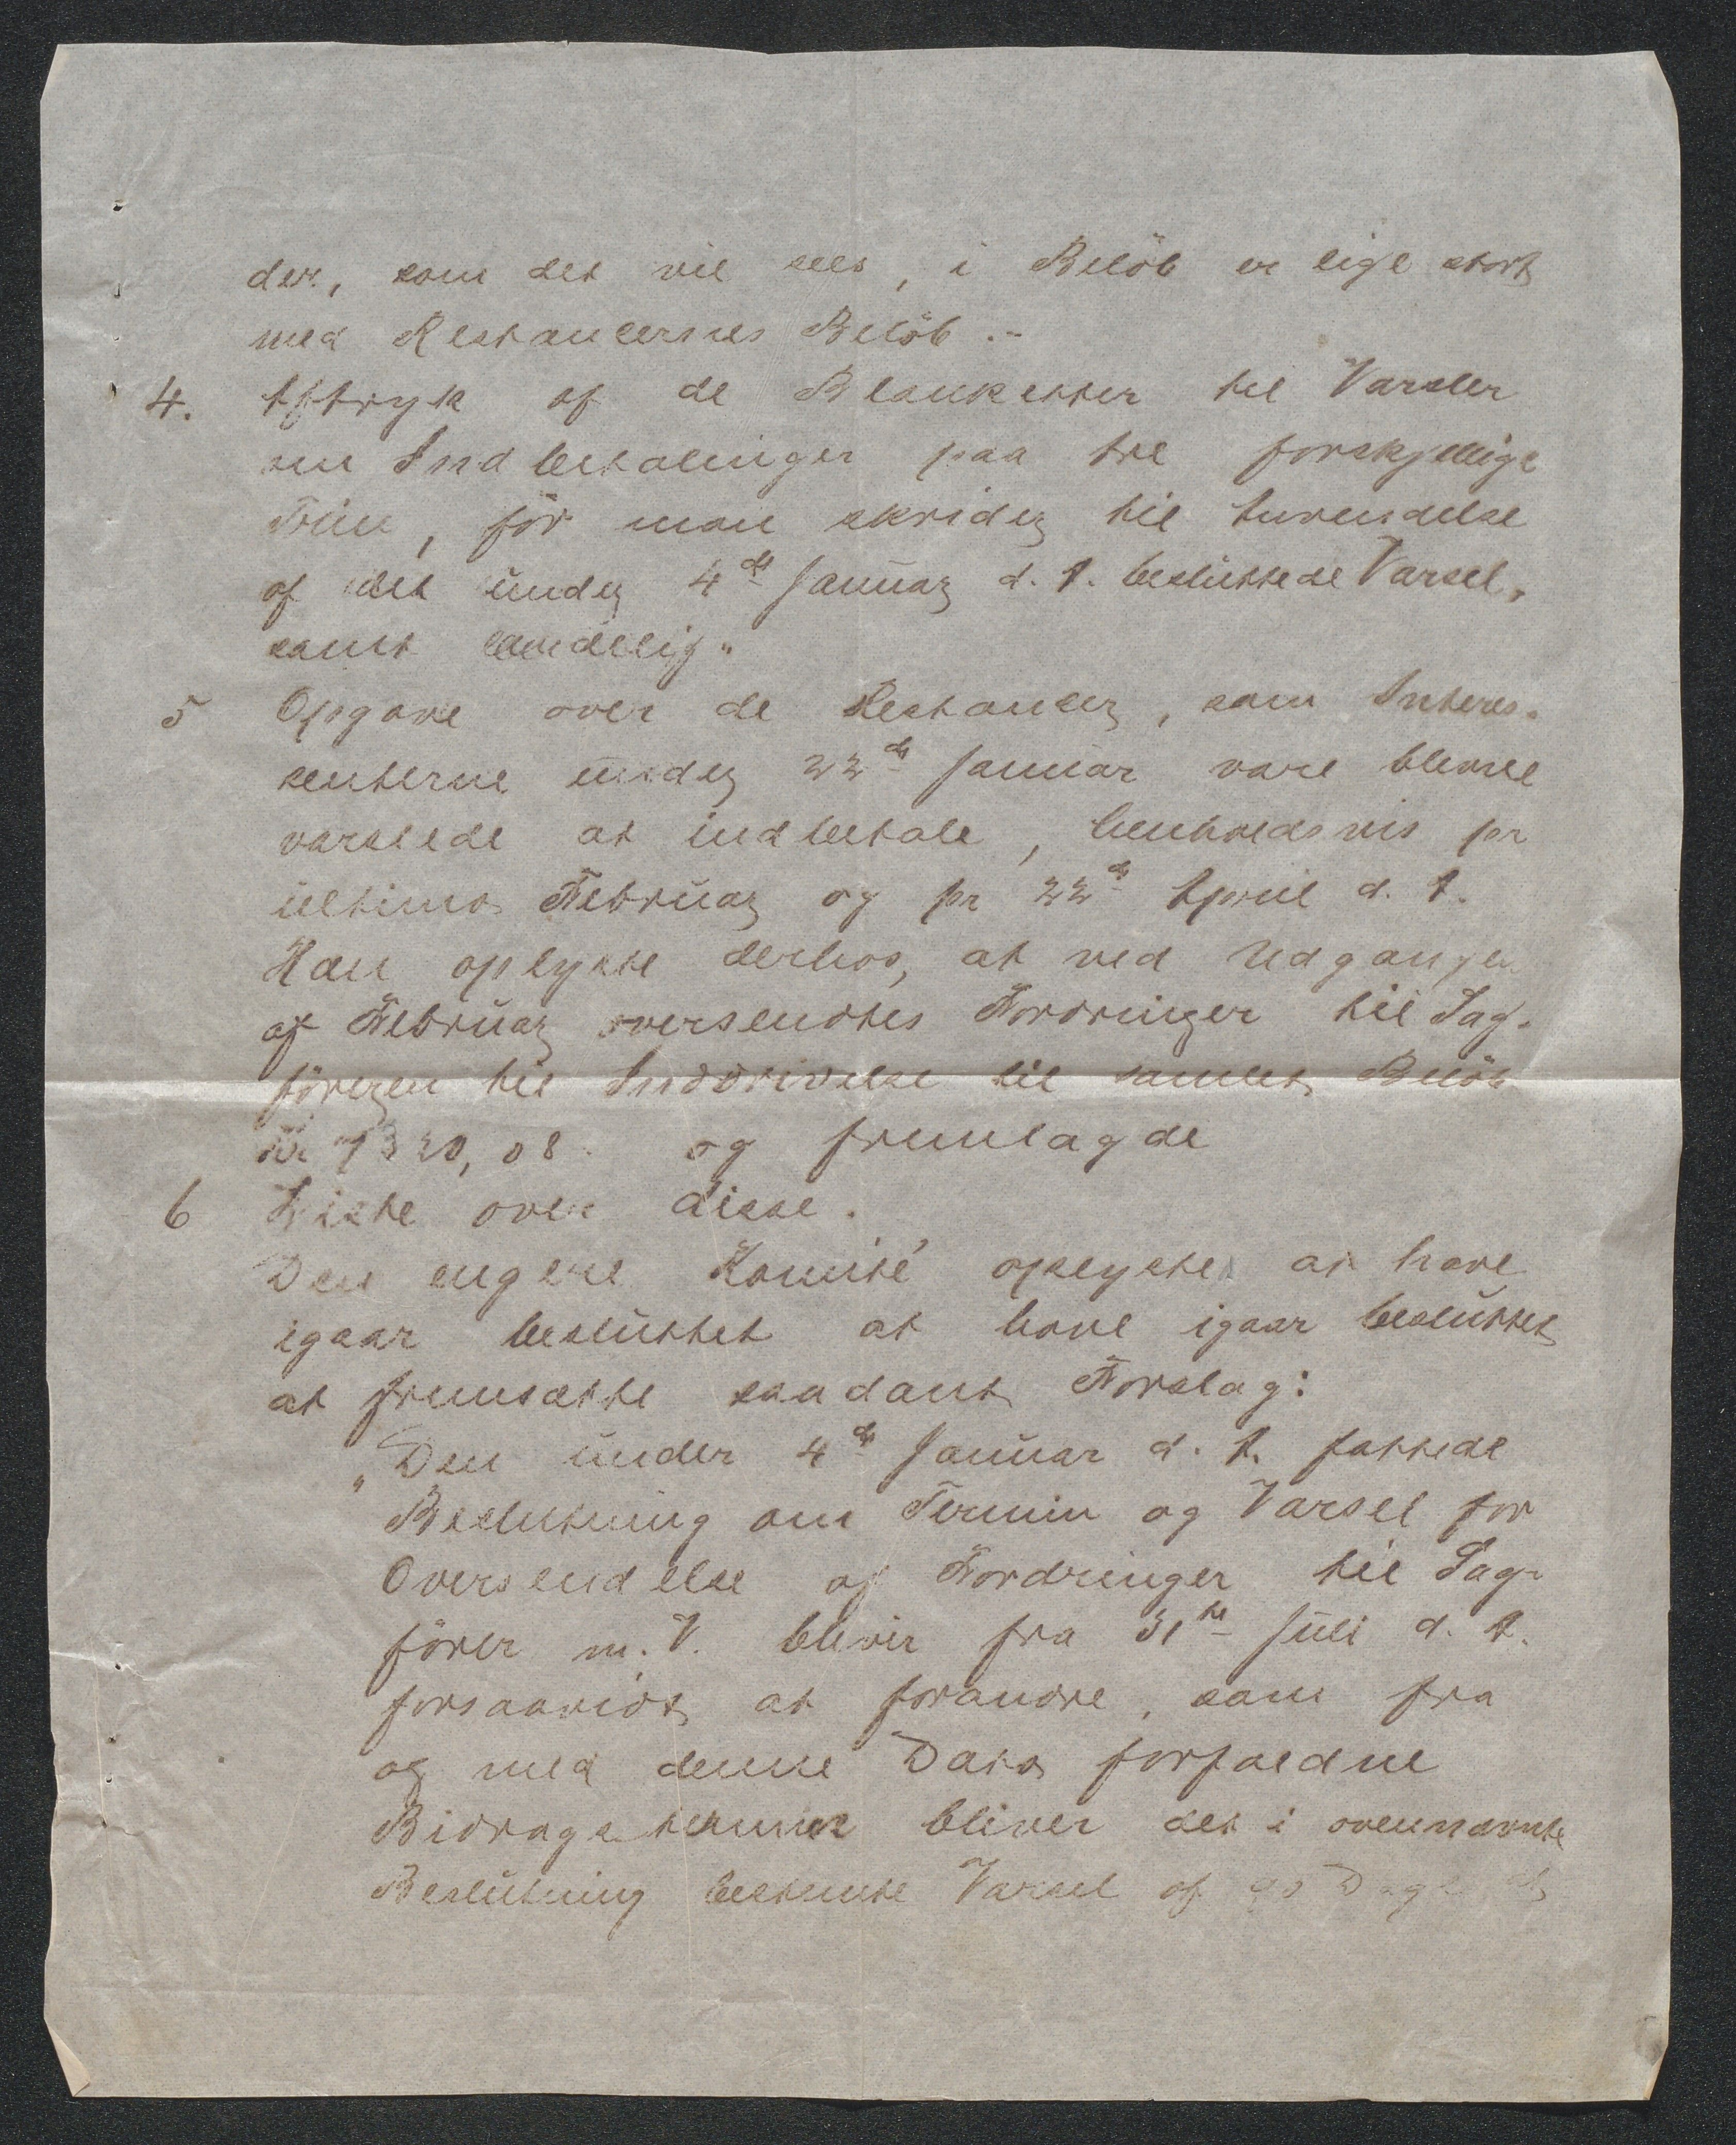 der, som det vil sees, i Belöb er lige stort
med Restancernes Belöb.-
4. Aftryk af de Blanketter til Varsler
om Indbetalinger paa tre forskjellige
Trin, för man skrider til Anvendelse
af det under 4de Januar d. A. besluttede Varsel,
samt endelig"
5 Opgave over de Restancer, som Interes-
senterne under 22de Januar vare blevne
varslede at indbetale, henholdsvis pr
ultimo Februar og pr 22de April d. A.
Han oplyste derhos, at ved Udgangen
af Februar oversendtes Fordringer til Sag-
föreren til Inddrivelse til samlet Belöb
Kr 7320,08. og fremlagde
6 Liste over disse.
Den engere Komité oplyste at have
igaar besluttet at have igaar besluttet
at fremsætte saadant Forslag:
"Den under 4de Januar d. A. fattede
Beslutning om Termin og Varsel for
Oversendelse af Fordringer til Sag-
förer m. V. bliver fra 31te Juli d. A.
forsaavidt at forandre, som fra
og med denne Dato forfaldne
Bidragstermin bliver det i ovennævnte
Beslutning bestemte Varsel af 90 Dage